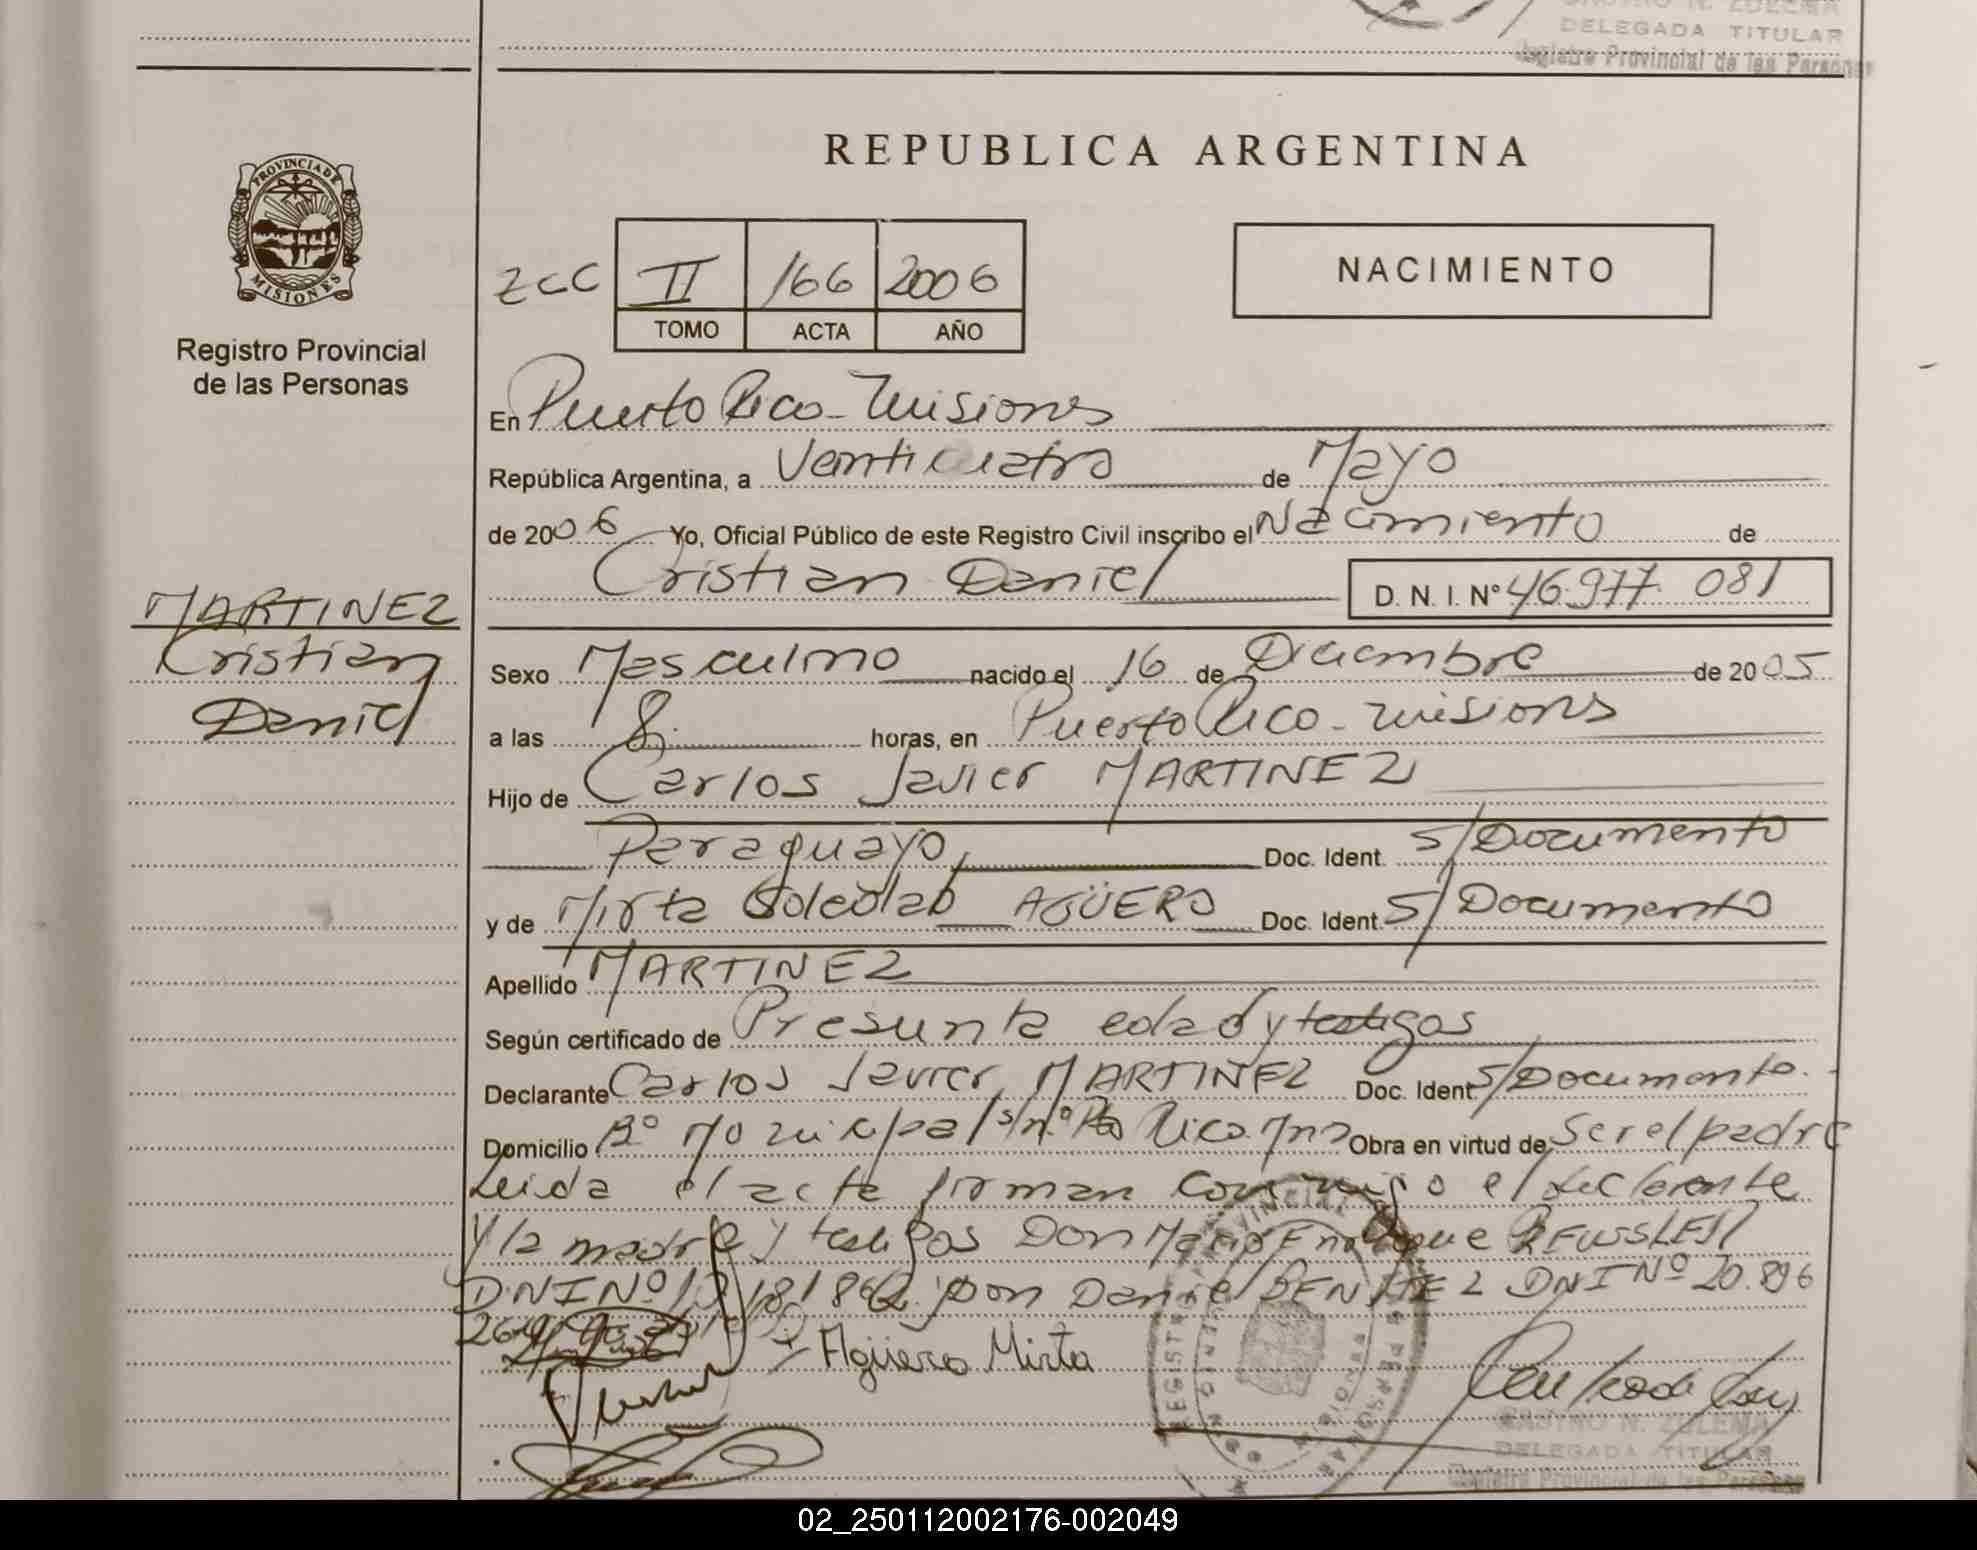 CASTRO N. ZULEMA
DELEGADA TITULAR
Registro Provincial de las Personas
REPUBLICA ARGENTINA
PROVINCIA DE
MISIONES
Registro Provincial
de las Personas
ZCC II 166 2006
TOMO ACTA AÑO
NACIMIENTO
En Puerto Rico - Misiones
República Argentina, a Veinticuatro de Mayo
de 2006 Yo, Oficial Público de este Registro Civil inscribo el Nacimiento de
Cristian Daniel
D. N. I. N° 46.977.081
MARTINEZ
Cristian
Daniel
Sexo Masculino nacido el 16 de Diciembre de 2005
a las 8 horas, en Puerto Rico - Misiones
Hijo de Carlos Javier MARTINEZ
Paraguayo, Doc. Ident. S/Documento
y de Mirta Soledad AGÜERO Doc. Ident. S/Documento
Apellido MARTINEZ
Según certificado de Presunta edad y testigos
Declarante Carlos Javier MARTINEZ Doc. Ident. S/Documento.
Domicilio B° Municipal s/n° Pto Rico. Mnes Obra en virtud de Ser el padre
Leida el acta firman conmigo el declarante
y la madre y testigos Don Mario Enrique
DNI Nº Don Daniel BENITEZ DNI Nº 20.896
Agüero Mirta
REGISTRO PROVINCIAL
CASTRO N. ZULEMA
DELEGADA TITULAR
Registro Provincial de las Personas
02_250112002176-002049